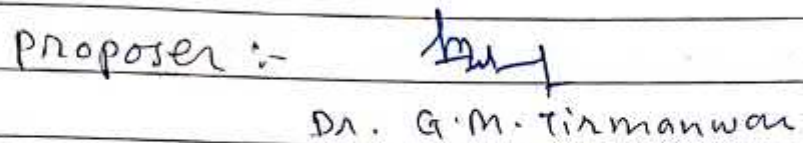 Proposer :-
Dr. G.M. Tirmanwar